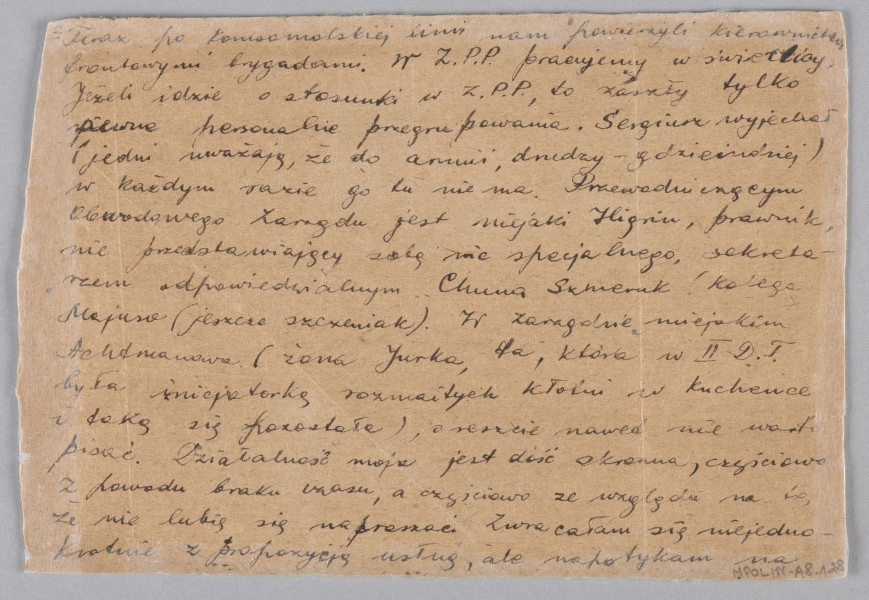 Teraz po komsomolskiej linii nam powierzyli kierownictwo
frontowymi brygadami. W Z.P.P. pracujemy w świetlicy.
Jeżeli idzie o stosunki w Z.P.P., to zaszły tylko
pewne personalne przegrupowania. Sergiusz wyjechał
(jedni uważają, że do armii, drudzy - gdzieindziej)
w każdym razie go tu nie ma. Przewodniczącym
Obwodowego Zarządu jest niejaki prawnik,
nie przedstawiający sobą nic specjalnego, sekreta-
rzem odpowiedzialnym Chuna Szmeruk (kolega
Majusa (jeszcze szczeniak). W zarządzie miejskim
Achtmanowa (żona Jurka, ta, która w II D.T.
była inicjatorką rozmaitych kłótni w kuchence
i taką się pozostała), o reszcie nawet nie warto
pisać. Działalność moja jest dość skromna, częściowo
z powodu braku czasu, a częściowo ze względu na to,
że nie lubię się napraszać. Zwracałam się niejedno-
krotnie z propozycją usług, ale napotykam na
MPOLIN-A8.1.28